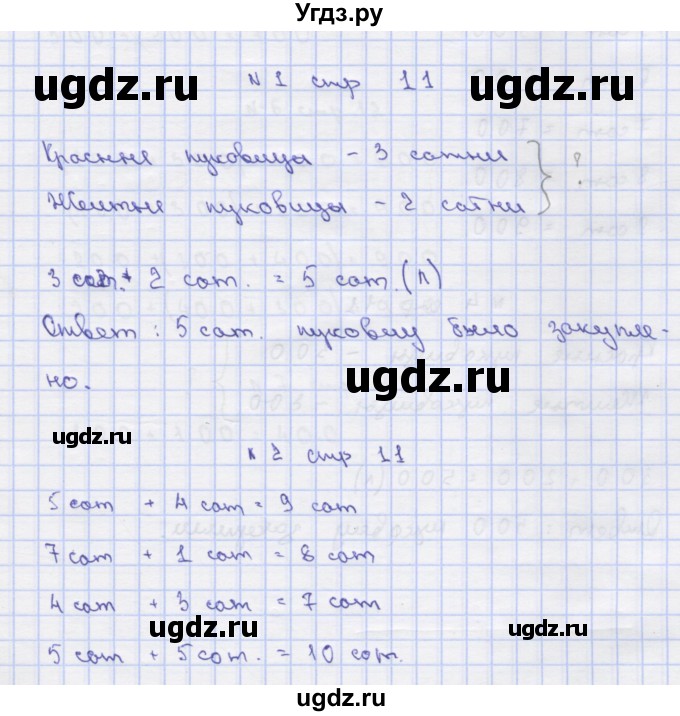 Угдз.ру
ugdz.ru ugdz.ru
№ 1 стр 11
Красные пуковицы - 3 сотни } ?
Желтые пуковицы - 2 сотни
3 сот. + 2 сот. = 5 сот. (п)
Ответ: 5 сот. пуковиц было закупле-
но.
ugdz.ru
ugdz.ru
№ 2 стр 11
5 сот + 4 сот = 9 сот
7 сот + 1 сот = 8 сот
4 сот + 3 сот = 7 сот
ugdz.ru ugdz.ru
5 сот + 5 сот. = 10 сот.
ugdz.ru